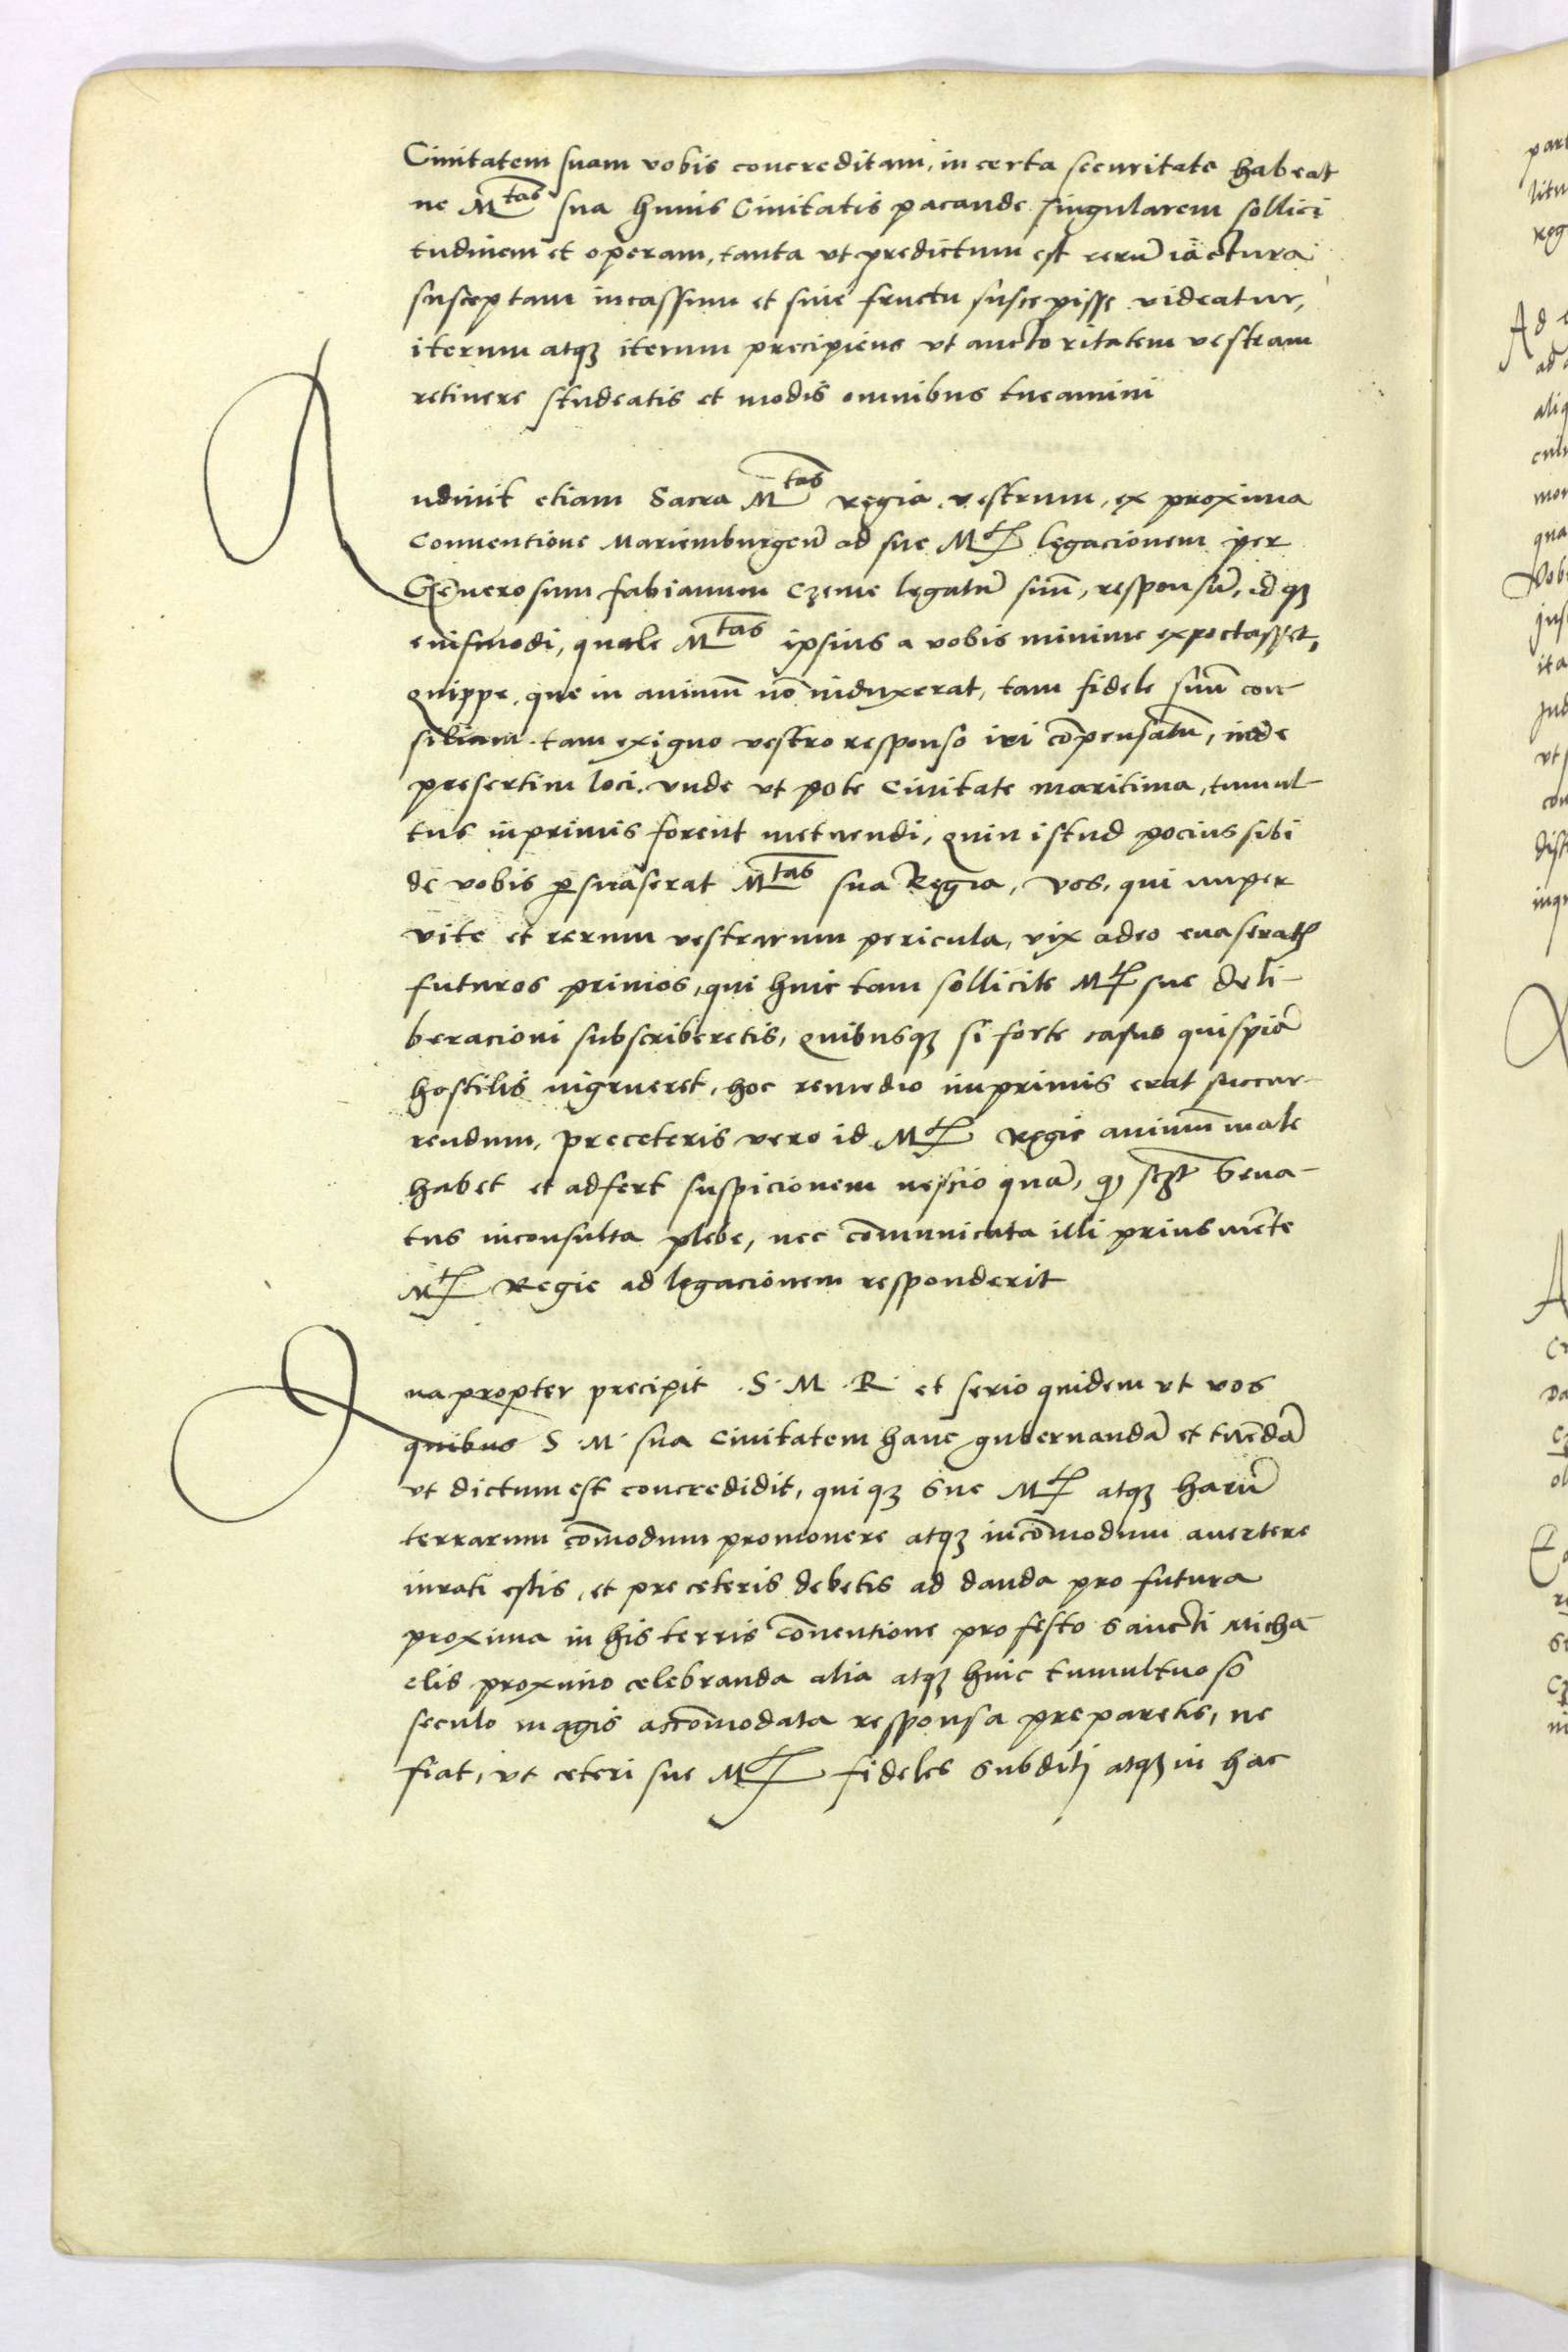 Ciuitatem suam vobis concreditam, in certa securitate habeat
ne M^tas sua huius Ciuitatis pacande singularem sollici
tudinem et operam, tanta vt predictum est rerũ iactura
susceptam incassum et sine fructu suscepisse videatur,
iterum atqꝫ iterum precipiens vt auctoritatem vestram
retinere studeatis et modis omnibus tueamini
Audiuit etiam Sacra M^tas regia vestrum, ex proxima
Conuentione Mariemburgeñ ad sue M^tis legacionem per
Generosum fabianum Czeme legatũ suũ, responsũ, idqꝫ
eiusmodi, quale M^tas ipsius a vobis minime expectasset,
quippe, que in animũ nõ induxerat, tam fidele suũ con
silium tam exiguo vestro responso iri cõpensatũ, inde
presertim loci, vnde vt pote Ciuitate maritima, tumul-
tus inprimis forent metuendi, quin istud pocius sibi
de vobis ꝑsuaserat M^tas sua Regia, vos, qui nuper
vite et rerum vestrarum pericula, vix adeo euaseratis
futuros primos, qui huic tam sollicite M^tis sue deli-
beracioni subscriberetis, quibusqꝫ si forte casus quispiã
hostilis ingrueret, hoc remedio imprimis erat succur-
rendum, preceteris vero id M^tis Regie animũ male
habet et adfert suspicionem nescio quã, Sena-
tus inconsulta plebe, nec cõmunicata illi prius mẽte
M^tis Regie ad legacionem responderit
Quapropter precipit S. M. R. et serio quidem vt vos
quibus S. M. sua Ciuitatem hanc gubernandã et tuẽdã
vt dictum est concredidit, quiqꝫ Sue M^tis atqꝫ harũ
terrarum cõmodum promouere atqꝫ incõmodum auertere
iurati estis, et pre ceteris debetis ad danda pro futura
proxima in his terris Cõuentione pro festo Sancti Micha
elis proximo celebranda alia atqꝫ huic tumultuoso
seculo magis accõmodata responsa preparetis, ne
fiat, vt ceteri sue M^tis fideles subditi atqꝫ in hac